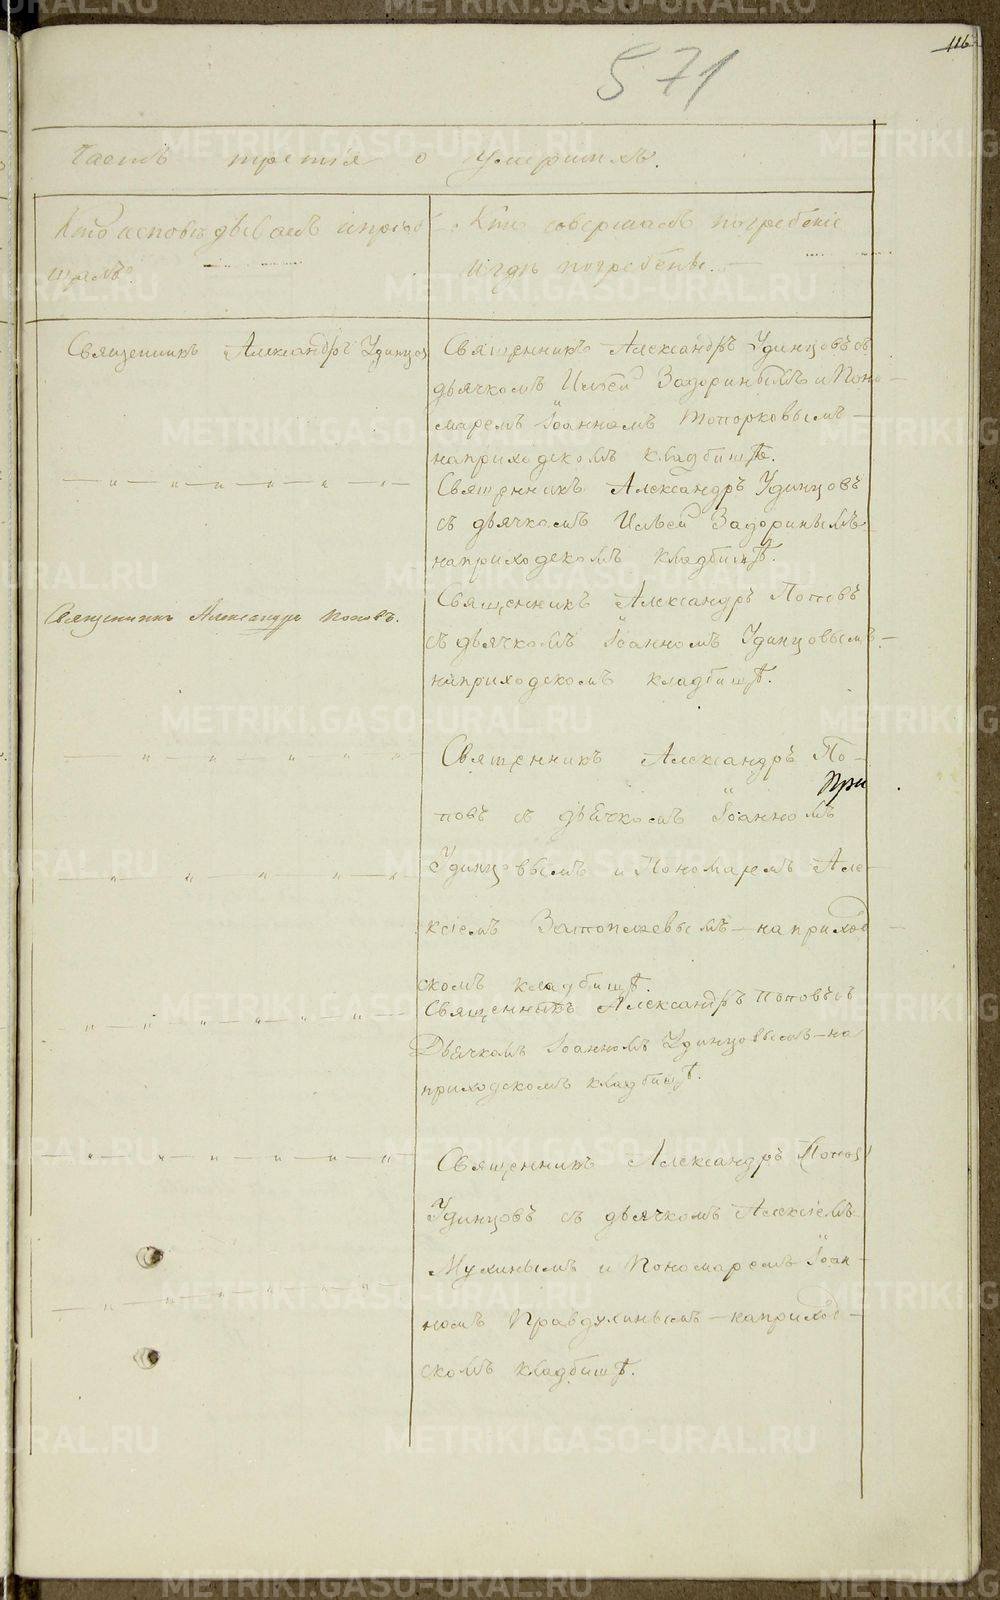 116
571
Часть третія о умершихъ.
Кто исповѣдывалъ и пріоб-
щалъ.
Кто совершалъ погребеніе
и гдѣ погребены.
Священникъ Александръ Удинцов
Священникъ Александръ Удинцовъ съ
дьячкомъ Ильей Задоринымъ и Поно-
маремъ Іоанномъ Топорковымъ —
на приходскомъ кладбищѣ.
— „ — „ — „ — „ — „ —
Священникъ Александръ Удинцовъ
съ дьячкомъ Ильей Задоринымъ
на приходскомъ кладбищѣ.
Священникъ Александръ Поповъ.
Священникъ Александръ Поповъ
съ дьячкомъ Іоанномъ Удинцовымъ —
на приходскомъ кладбищѣ.
— „ — „ — „ — „ —
Священникъ Александръ По-
При
повъ съ дьячкомъ Іоанномъ
— „ — „ — „ — „ — „
Удинцовымъ и Пономаремъ Але-
ксіемъ — на приход-
скомъ кладбищѣ.
— „ — „ — „ — „ — „ —
Священникъ Александръ Поповъ съ
Дьячкомъ Іоанномъ Удинцовымъ — на
приходскомъ кладбищѣ.
— „ — „ — „ — „ — „ —
Священникъ Александръ (Поповъ)
Удинцовъ съ дьячкомъ Алексіемъ
Мухинымъ и Пономаремъ Іоан-
— „ — „ — „ — „ — „ —
номъ Правдухинымъ — на приход-
скомъ кладбищѣ.
METRIKI.GASO-URAL.RU